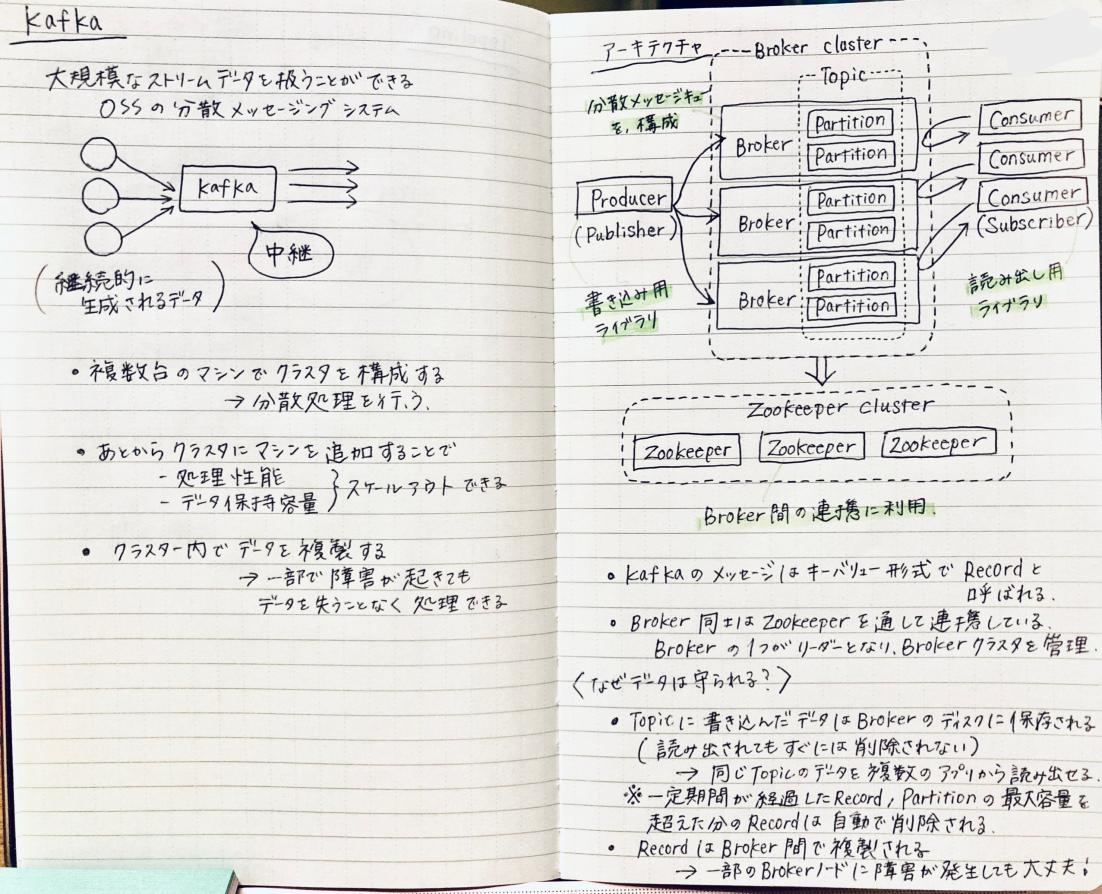 Kafka
大規模なストリームデータを扱うことができる
OSSの分散メッセージングシステム
Kafka
中継
(継続的に
生成されるデータ)
・複数台のマシンでクラスタを構成する
→ 分散処理を行う.
・あとからクラスタにマシンを追加することで
- 処理性能
- データ保持容量
} スケールアウトできる
・クラスター内でデータを複製する
→ 一部で障害が起きても
データを失うことなく処理できる
アーキテクチャ
Broker cluster
Topic
分散メッセージキュー
を構成
Broker
Partition
Partition
Broker
Partition
Partition
Broker
Partition
Partition
Producer
(Publisher)
書き込み用
ライブラリ
Consumer
Consumer
Consumer
(Subscriber)
読み出し用
ライブラリ
Zookeeper cluster
Zookeeper
Zookeeper
Zookeeper
Broker間の連携に利用.
・Kafkaのメッセージはキーバリュー形式でRecordと
呼ばれる.
・Broker同士はZookeeperを通して連携している.
Brokerの1つがリーダーとなり、Brokerクラスタを管理.
〈なぜデータは守られる?〉
・Topicに書き込んだデータはBrokerのディスクに保存される
(読み出されてもすぐには削除されない)
→ 同じTopicのデータを複数のアプリから読み出せる.
※一定期間が経過したRecord, Partitionの最大容量を
超えた分のRecordは自動で削除される.
・RecordはBroker間で複製される
→ 一部のBrokerノードに障害が発生しても大丈夫!